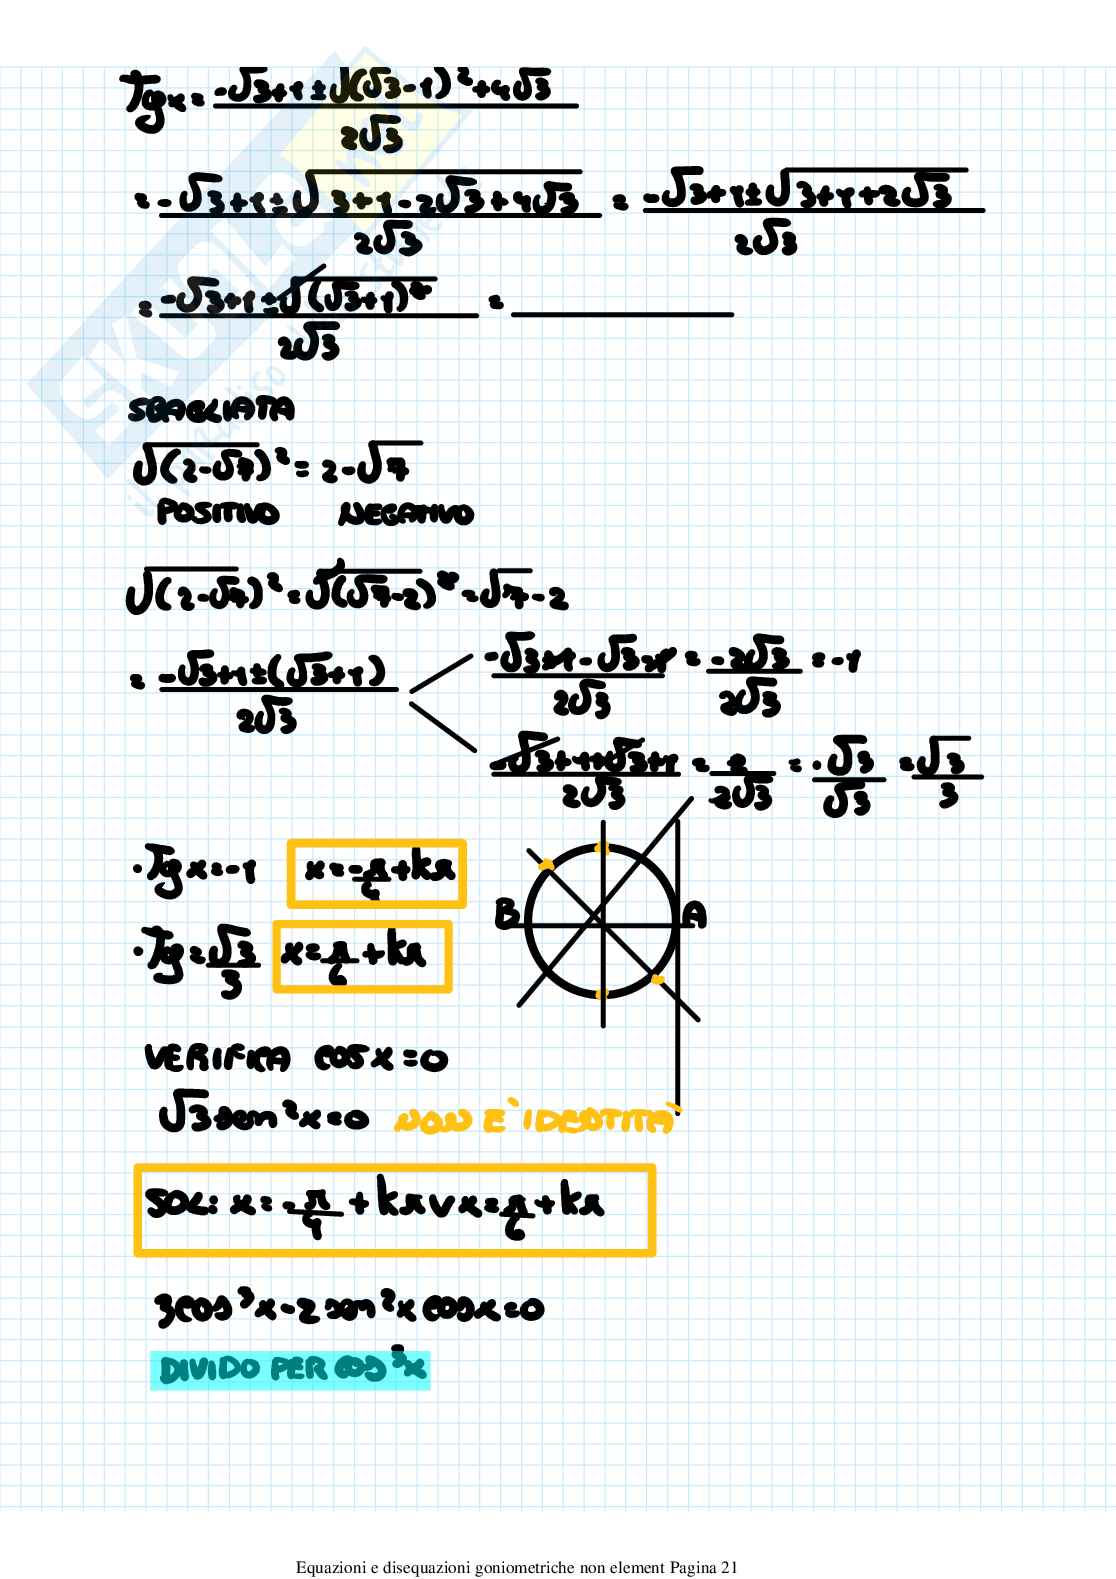 Tgx = (-√3+1±√(√3-1)²+4√3)/(2√3)
= (-√3+1±√(3+1-2√3+4√3))/(2√3) = (-√3+1±√(3+1+2√3))/(2√3)
= (-√3+1±√(√3+1)²)/(2√3) =
SBAGLIATA
√(2-√7)² = 2-√7
POSITIVO NEGATIVO
√(2-√7)² = √(√7-2)² = √7-2
= (-√3+1±(√3+1))/(2√3)
(-√3+1-√3-1)/(2√3) = (-2√3)/(2√3) = -1
(-√3+1+√3+1)/(2√3) = 2/(2√3) = ·√3/√3 = √3/3
· Tgx = -1 x = -π/4 + kπ
B A
· Tg = √3/3 x = π/6 + kπ
VERIFICA cosx = 0
√3 sen²x = 0 NON E' IDENTITA'
SOL: x = -π/4 + kπ v x = π/6 + kπ
3cos³x - 2 sen²x cosx = 0
DIVIDO PER cos³x
Equazioni e disequazioni goniometriche non element Pagina 21